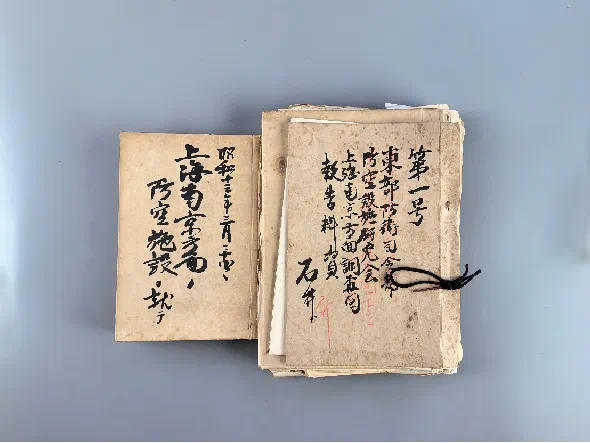 第一号
東部防衛司令部
防空設施研究会
上海南京方面調査団
報告料
石井
昭和十三年三月
上海南京方面ノ
防空施設ニ就テ